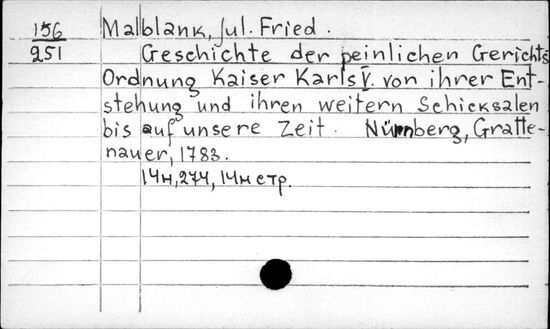 156 Malblank, Jul. Fried.
251 Geschichte der peinlichen Gerichts
Ordnung Kaiser Karls V. von ihrer Ent-
stehung und ihren weitern Schicksalen
bis auf unsere Zeit. Nürnberg, Gratte-
nauer, 1783.
14н, 274, 14н стр.